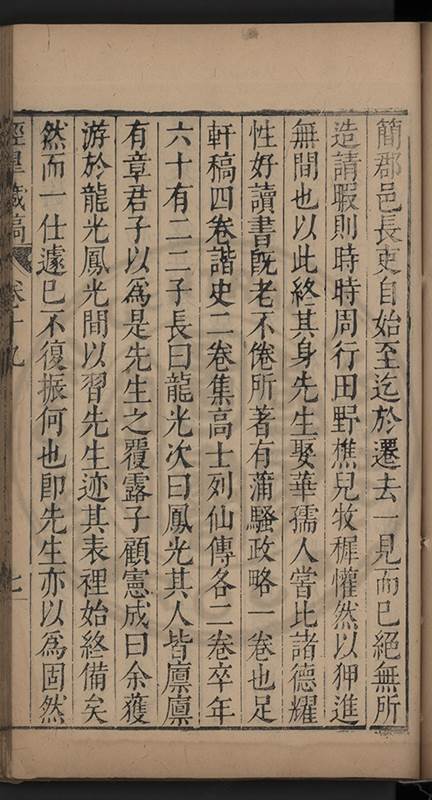 簡郡邑長吏自始至迄於遷去一見而已絕無所
造請暇則時時周行田野樵兒牧穉懽然以狎進
無間也以此終其身先生娶華孺人嘗比諸德耀
性好讀書旣老不倦所著有蒲騷政略一卷也足
軒稿四卷諧史二卷集高士列仙傳各二卷卒年
六十有二二子長曰龍光次曰鳳光其人皆廪廪
有章君子以爲是先生之覆露子顧憲成曰余獲
游於龍光鳳光間以習先生迹其表裡始終備矣
然而一仕遽已不復振何也卽先生亦以爲固然
涇臯藏稿 卷十九 七